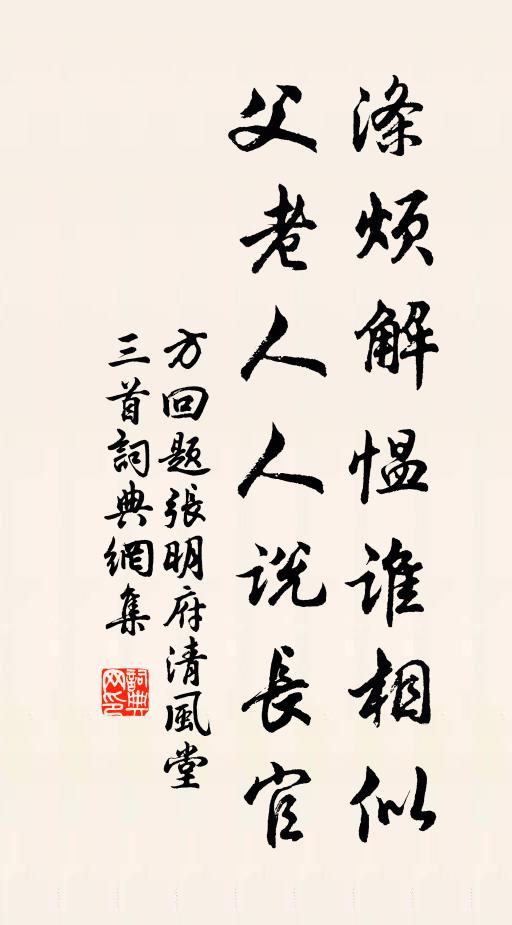 涤烦解愠谁相似
父老人人说长官
方回题张明府清風堂
三首詞典網集
詞典网印